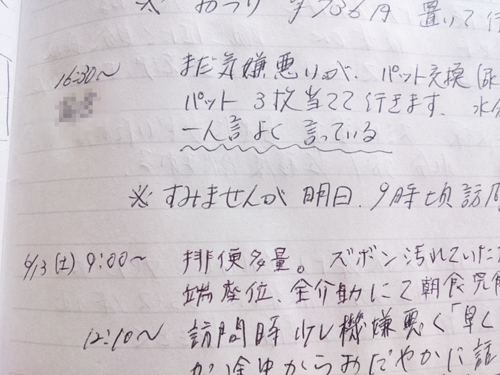 ※ おつり ¥7036円 置いて行
16:30~ まだ気嫌悪いのか、パット交換(尿
パット 3枚当てて行きます。水分
一人言よく 言っている
※ すみませんが 明日、9時頃 訪問
6/13(土) 9:00~ 排便多量。ズボン汚れていた
端座位、全介助にて朝食完食
12:10~ 訪問時 少し機嫌悪く「早く
が途中からおだやかに話